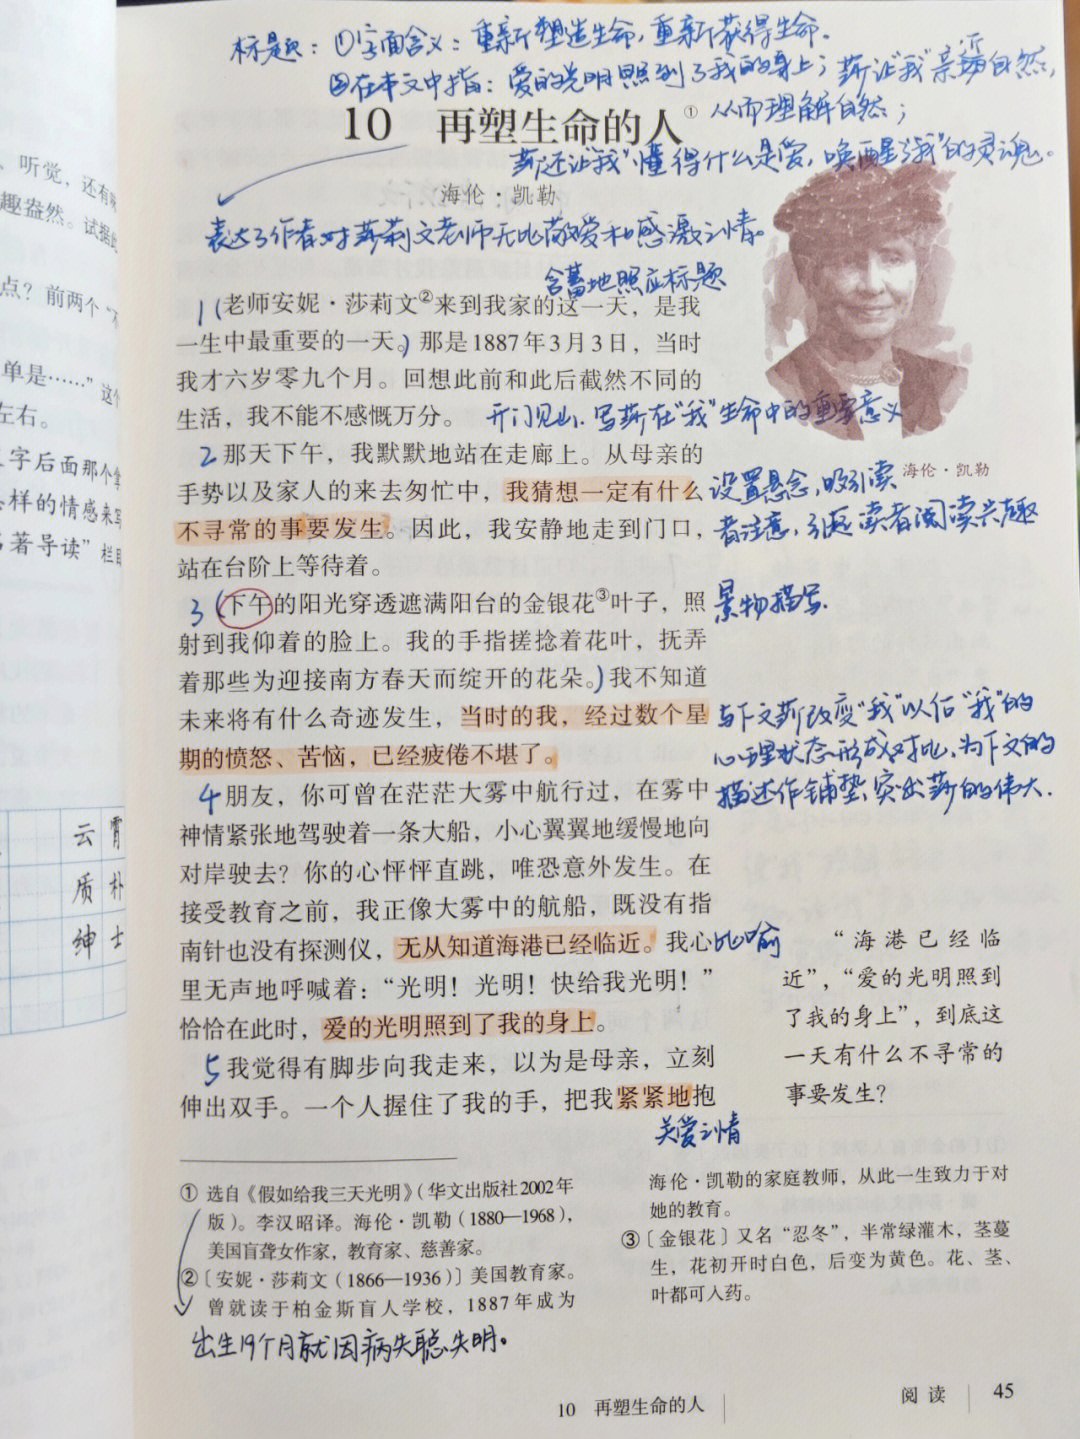 标题：①字面含义：重新塑造生命，重新获得生命。
②在本文中指：爱的光明照到了我的身上；莎让“我”亲近自然，
从而理解自然；
10 再塑生命的人①
莎还让“我”懂得什么是爱，唤醒了“我”的灵魂。
海伦·凯勒
表达了作者对莎莉文老师无比敬爱和感激之情。
含蓄地照应标题
1（老师安妮·莎莉文②来到我家的这一天，是我
一生中最重要的一天。）那是1887年3月3日，当时
我才六岁零九个月。回想此前和此后截然不同的
生活，我不能不感慨万分。
开门见山．写莎在“我”生命中的重要意义
2那天下午，我默默地站在走廊上。从母亲的
手势以及家人的来去匆忙中，我猜想一定有什么
不寻常的事要发生。因此，我安静地走到门口，
站在台阶上等待着。
设置悬念，吸引读
者注意，引起读者阅读兴趣
海伦·凯勒
3（下午的阳光穿透遮满阳台的金银花③叶子，照
射到我仰着的脸上。我的手指搓捻着花叶，抚弄
着那些为迎接南方春天而绽开的花朵。）我不知道
未来将有什么奇迹发生，当时的我，经过数个星
期的愤怒、苦恼，已经疲倦不堪了。
景物描写．
与下文莎改变“我”以后“我”的
心理状态形成对比，为下文的
描述作铺垫，突出莎的伟大．
4朋友，你可曾在茫茫大雾中航行过，在雾中
神情紧张地驾驶着一条大船，小心翼翼地缓慢地向
对岸驶去？你的心怦怦直跳，唯恐意外发生。在
接受教育之前，我正像大雾中的航船，既没有指
南针也没有探测仪，无从知道海港已经临近。我心
里无声地呼喊着：“光明！光明！快给我光明！”
恰恰在此时，爱的光明照到了我的身上。
比喻
“海港已经临
近”，“爱的光明照到
了我的身上”，到底这
一天有什么不寻常的
事要发生？
5我觉得有脚步向我走来，以为是母亲，立刻
伸出双手。一个人握住了我的手，把我紧紧地抱
关爱之情
① 选自《假如给我三天光明》（华文出版社2002年
版）。李汉昭译。海伦·凯勒（1880—1968），
美国盲聋女作家，教育家、慈善家。
②〔安妮·莎莉文（1866—1936）〕美国教育家。
曾就读于柏金斯盲人学校，1887年成为
海伦·凯勒的家庭教师，从此一生致力于对
她的教育。
③〔金银花〕又名“忍冬”，半常绿灌木，茎蔓
生，花初开时白色，后变为黄色。花、茎、
叶都可入药。
出生19个月就因病失聪失明。
10 再塑生命的人
阅读 45
、听觉，还有
趣盎然。试据
点？前两个“不
单是……”这个
左右。
字后面那个
样的情感来写
名著导读”栏目
云霄
质朴
绅士